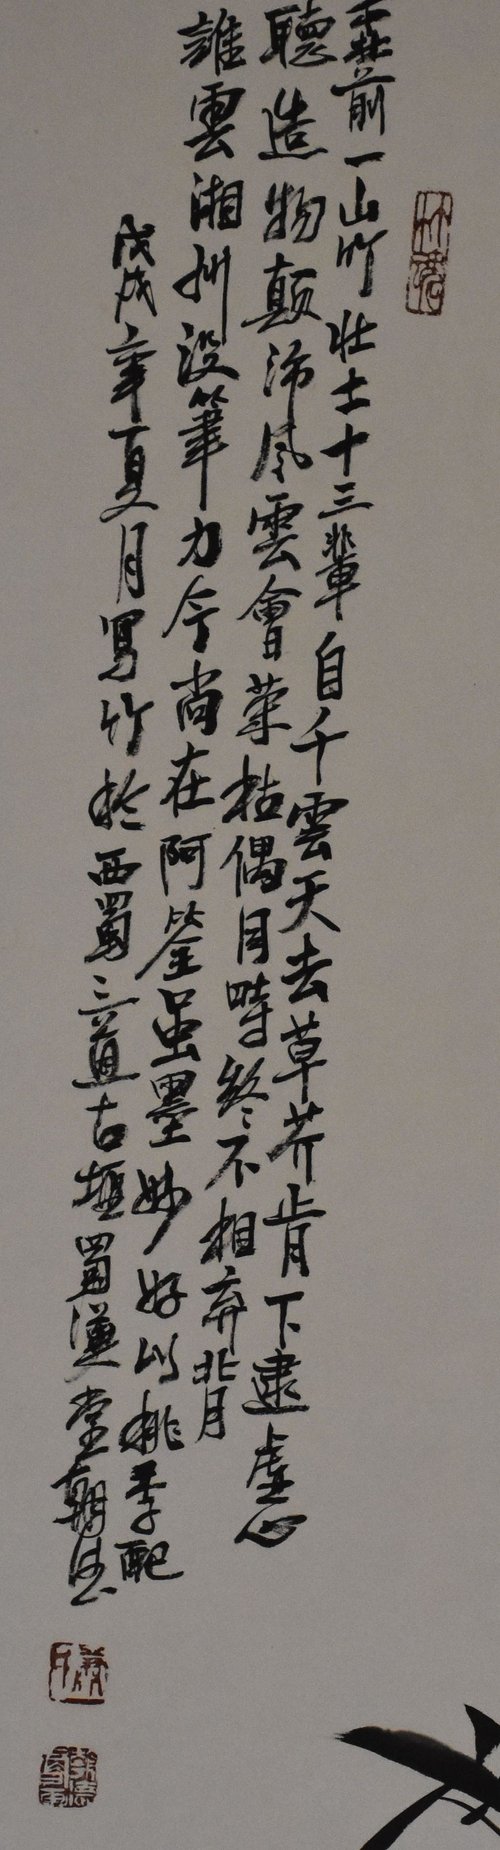 前一山竹壯士十三輩自千雲天去草芥肯下逮虛心
聽造物顛沛風雲會榮枯偶目時終不相棄背
誰雲湘州沒筆力今尚在阿筌虽墨妙好以桃李配
戊戌年夏月写竹於西蜀三道古堰蜀漢堂朝